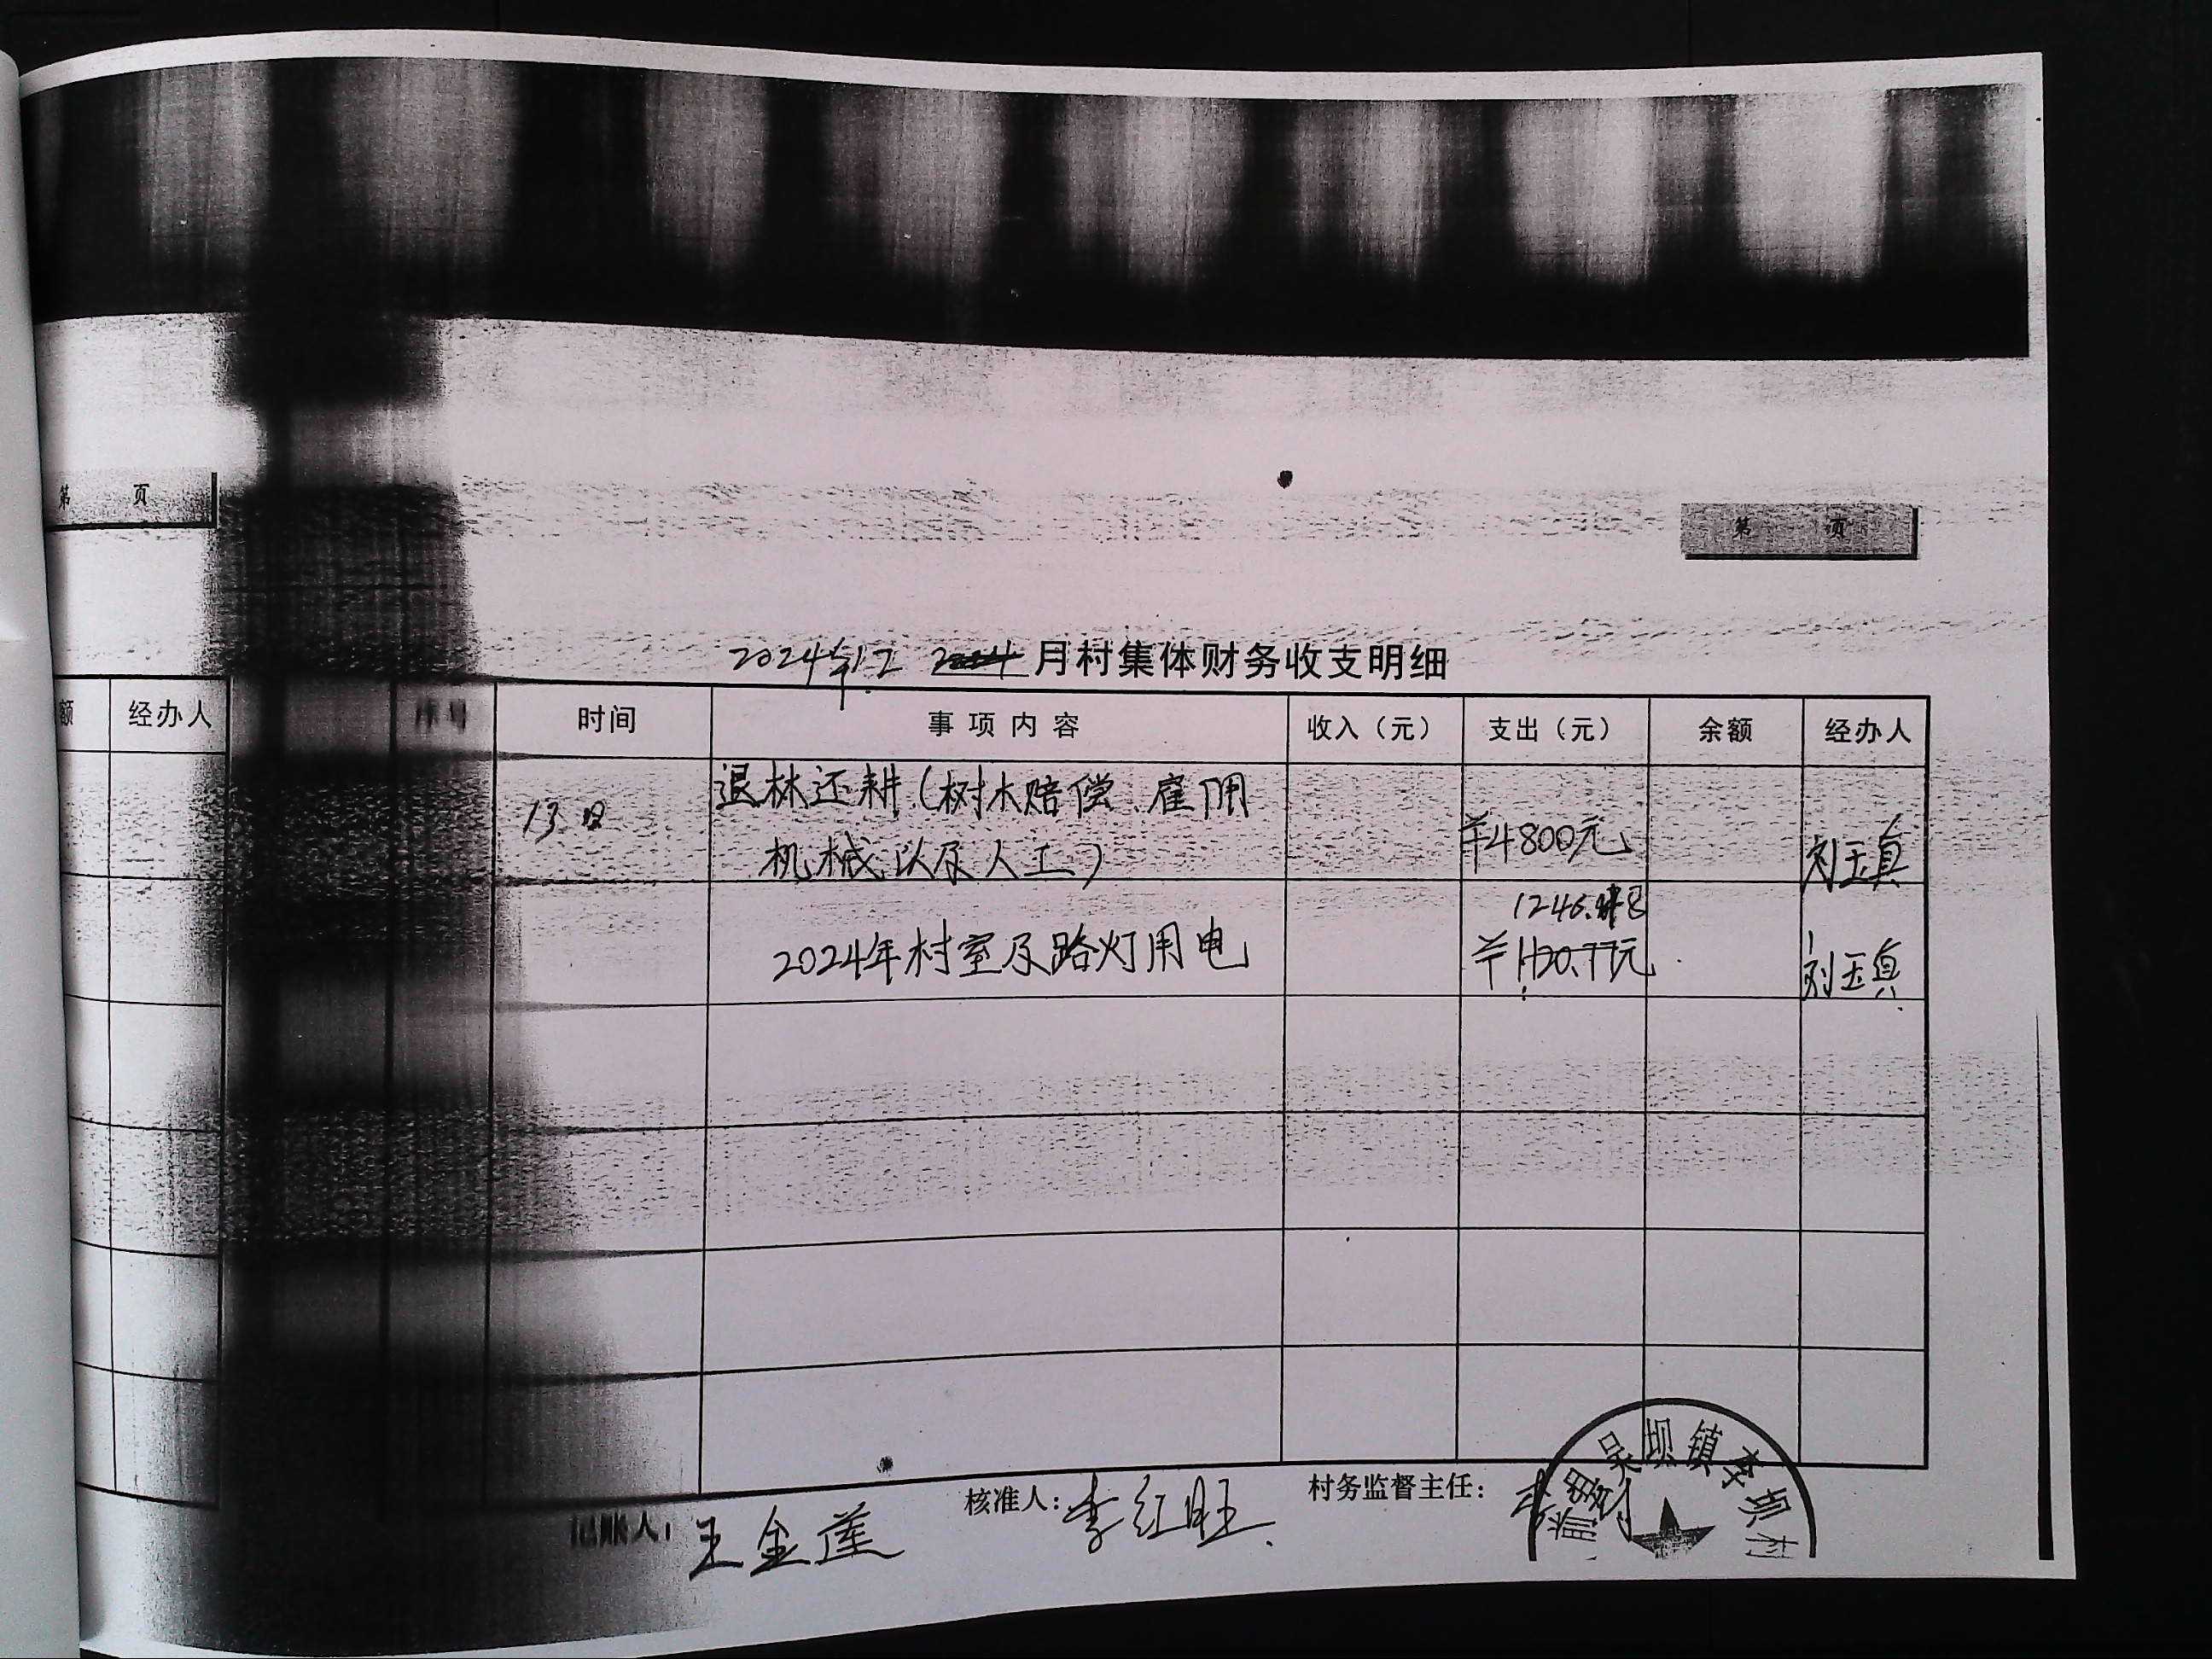 第 页
第 页
2024年12 月村集体财务收支明细
额 经办人
序号 时间 事项内容 收入（元） 支出（元） 余额 经办人
13日 退林还耕（树木赔偿、雇佣
机械以及人工） ¥4800元 刘玉真
1246.
2024年村室及路灯用电 ¥1120.77元 刘玉真
记账人： 王金莲 核准人： 李红旺 村务监督主任：
吴坝镇李坝村